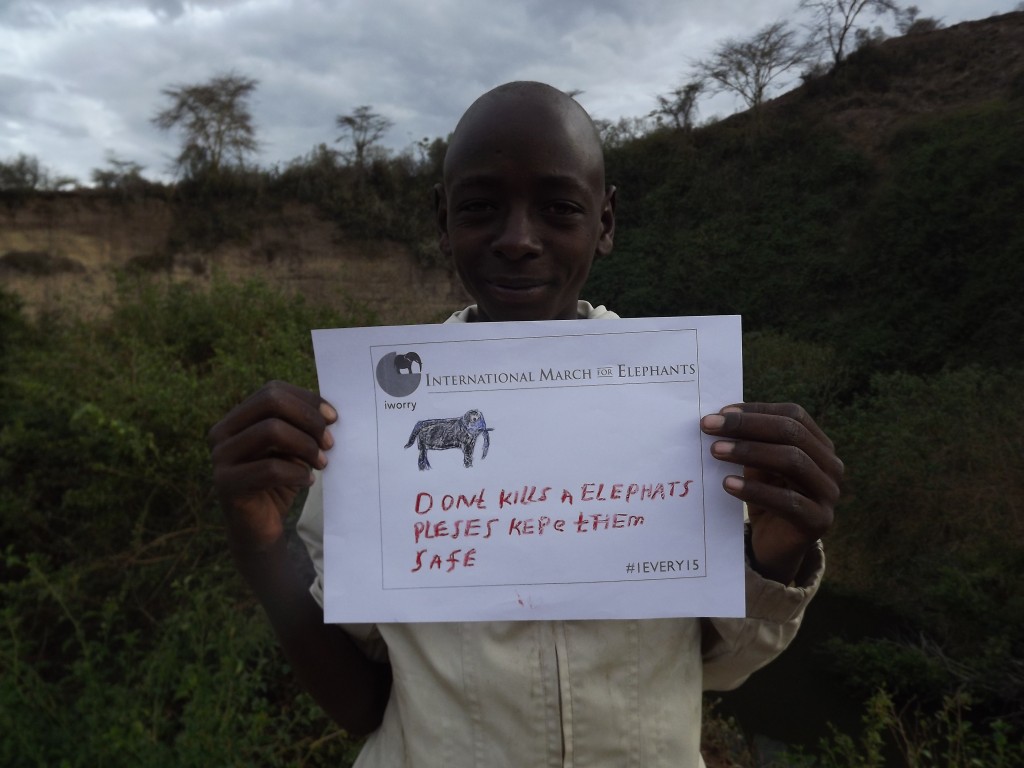 INTERNATIONAL MARCH FOR ELEPHANTS
iworry
DONt KILLS A ELEPHATS
PLESES KEPe tHEm
SAFE
#1EVERY15